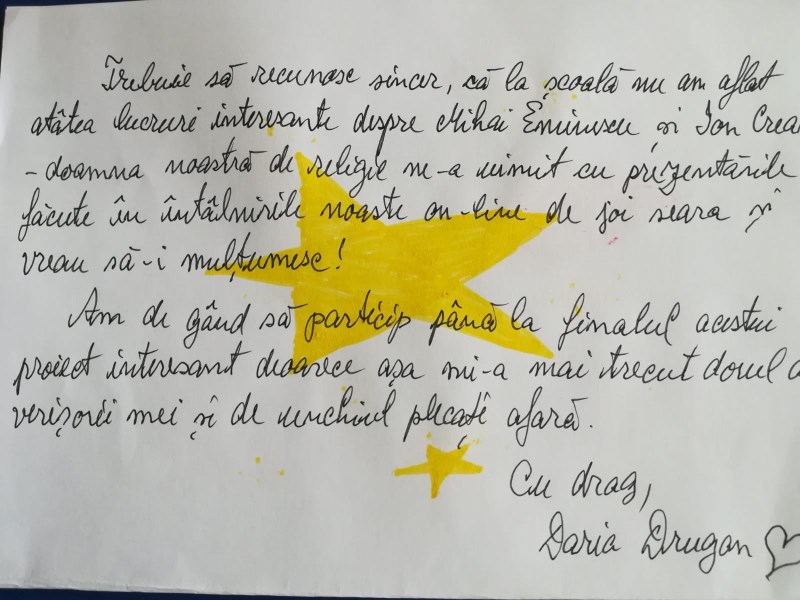 Trebuie să recunosc sincer, că la școală nu am aflat
atâtea lucruri interesante despre Mihai Eminescu și Ion Crea
- doamna noastră de religie ne-a uimit cu prezentările
făcute în întâlnirile noaste on-line de joi seara și
vreau să-i mulțumesc!
Am de gând să particip până la finalul acestui
proiect interesant deoarece așa mi-a mai trecut dorul d
verișorii mei și de unchiul plecați afară.
Cu drag,
Daria Drugan